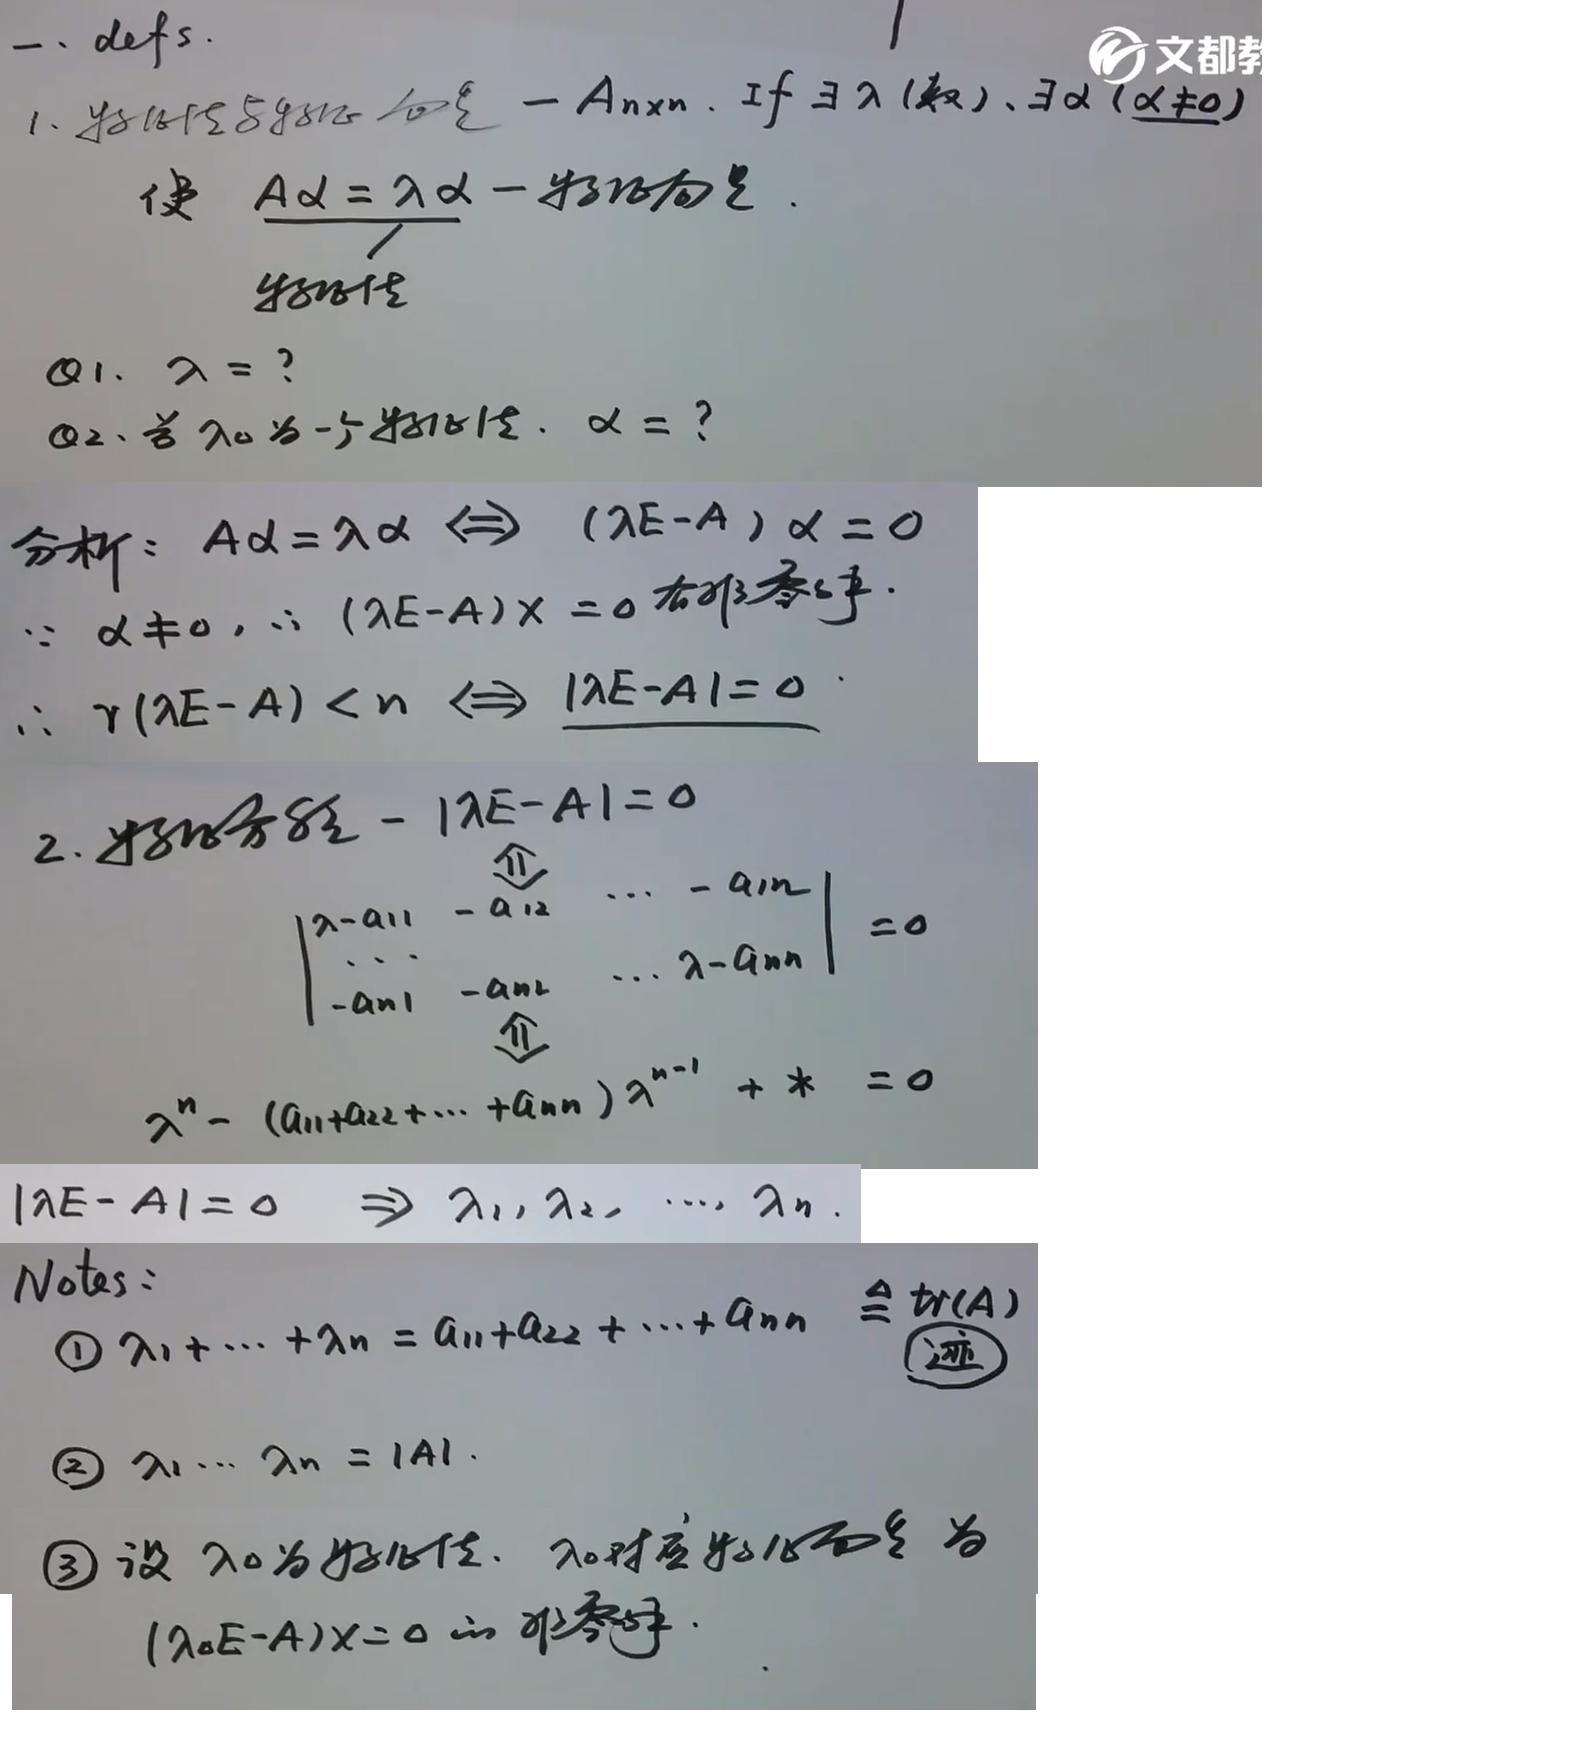 一、defs.
文都教
1. 特征值与特征向量 — An×n. If ∃λ(数)、∃α(α≠0)
使 Aα=λα — 特征向量.
特征值
Q1. λ=?
Q2、若λ0为一个特征值. α=?
分析: Aα=λα ⇔ (λE-A)α=0
∵ α≠0, ∴ (λE-A)X=0有非零解.
∴ r(λE-A)<n ⇔ |λE-A|=0
2. 特征方程 — |λE-A|=0
⇕
|λ-a11 -a12 ... -a1n|
... =0
|-an1 -an2 ... λ-ann|
⇕
λⁿ-(a11+a22+...+ann)λⁿ⁻¹+*=0
|λE-A|=0 ⇒ λ1, λ2, ..., λn.
Notes:
① λ1+...+λn=a11+a22+...+ann ≜ tr(A)
迹
② λ1...λn=|A|.
③ 设λ0为特征值. λ0对应特征向量为
(λ0E-A)X=0的非零解.